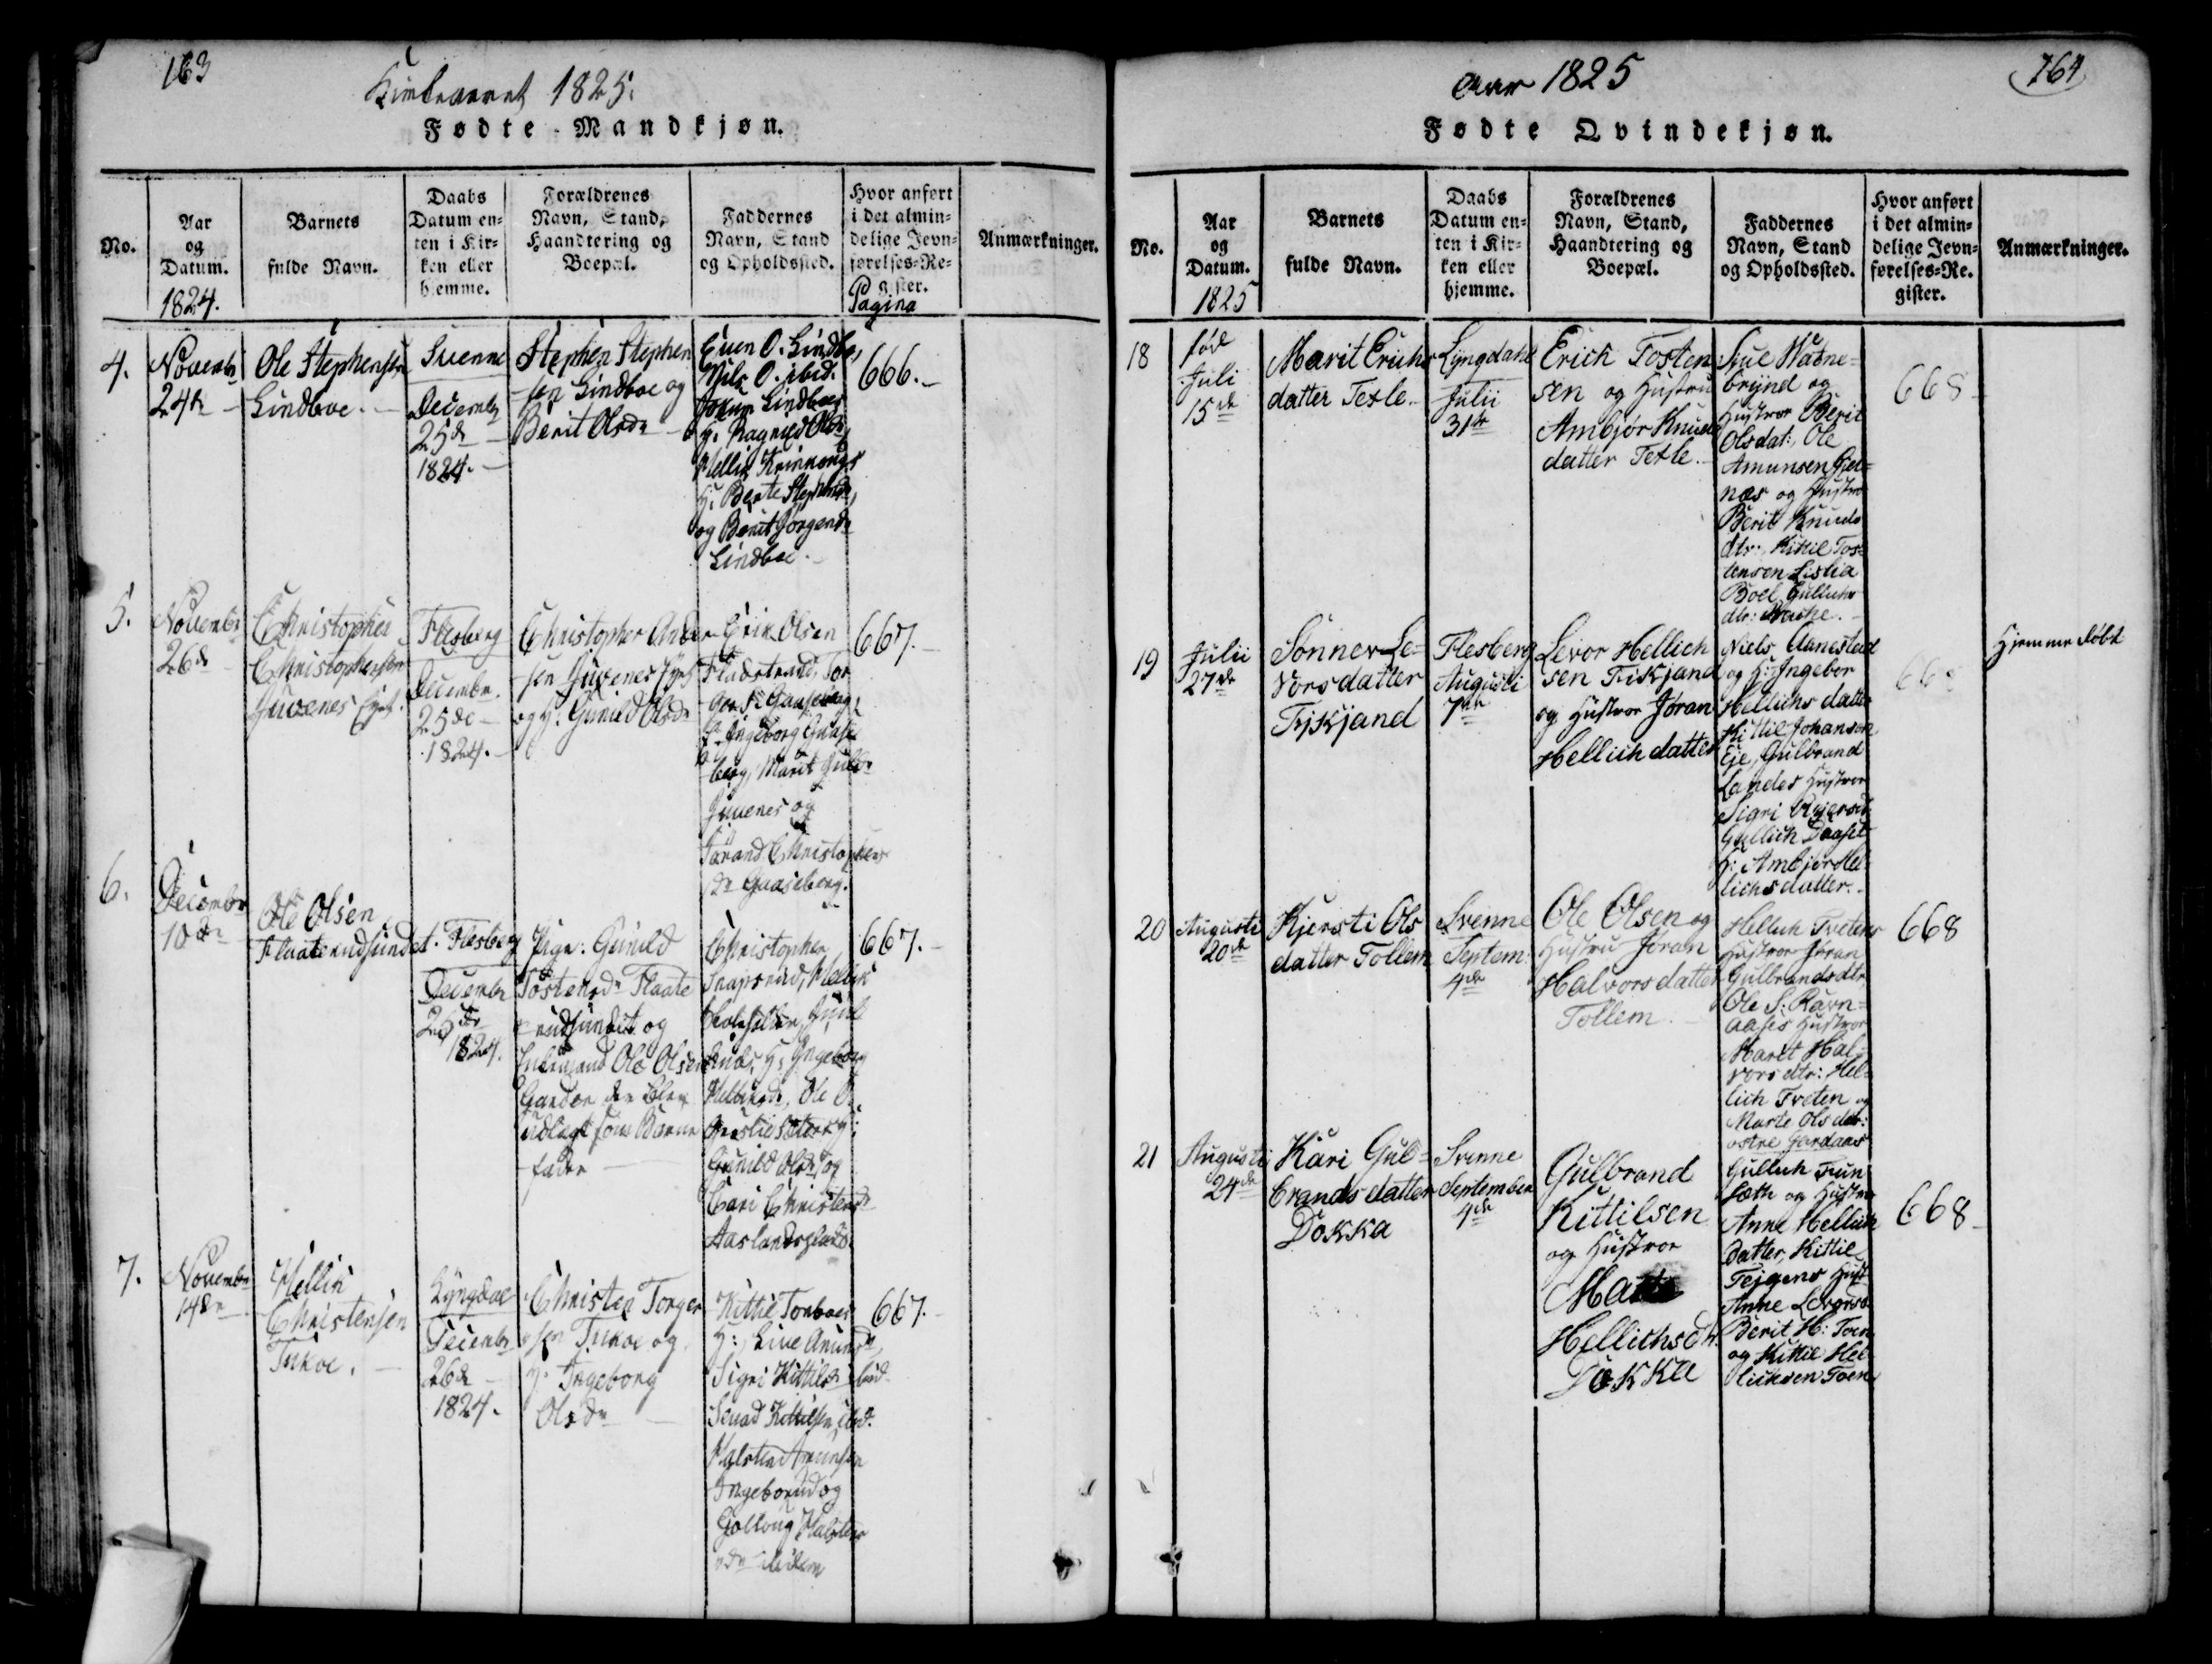 163
Kirkeaaret 1825.
Fødte-Mandkjøn.
No.
Aar
og
Datum.
1824.
Barnets
fulde Navn.
Daabs
Datum en-
ten i Kir-
ken eller
hjemme.
Forældrenes
Navn, Stand,
Haandtering og
Boepæl.
Faddernes
Navn, Stand
og Opholdssted.
Hvor anført
i det almin-
delige Jevn-
førelses-Re-
gister.
Pagina
Anmærkninger.
4.
Novembr
24de
Ole Stephensen
Lindboe.
Svenne
Decembr
25de
1824.
Stephen Stephen
sen Lindboe og
Berit Olsdr
Even O. Lindboe,
Nils O. ibid.
Lindboe
H. Ragnild Olsdr
Hellik
H. Berte Stephensdr,
og Berit Jörgensdr
Lindboe.
666.
5.
Novembr
26de
Christopher
Christophersen
Juvenes Eyet.
Flesberg
Decembr.
25de
1824.
Christopher Ander
sen Juvenes Eyet
og H. Gunild Olsdr
Erik Olsen
Fladerland, Tor
Gaaseberg,
P. Ingeborg Gaase
berg, Marit
Juvenes og
Jörand Christophers
dr Gaaseberg.
667.
6.
Decembr
10de
Ole Olsen
Flaaterudsundet.
Flesberg
Decembr
26de
1824.
Pige: Gunild
Tostensdr Flaate
rudsundet og
Ole Olsen
der blev
udlagt som Barne
fader
Christopher
Hellik
H. Ingeborg
Ole O.
Gunild Olsdr og
Kari Christensdr
Aaslandsplads.
667.
7.
Novembr
14de
Hellik
Christensen
Tukoe.
Lyngdal
Decembr
26de
1824.
Christen Torger
sen Tukoe og
H. Ingeborg
Olsdr
Kittil Tonboe
H: Live Amundsdr,
Sigri Kittilsdr ibid.
Kittilsen, ibid.
Halsten Amunsen
Ingeborrud og
Golloug Halstens
dr
667.
Aar 1825
764
Fødte Qvindekjøn.
No.
Aar
og
Datum.
1825
Barnets
fulde Navn.
Daabs
Datum en-
ten i Kir-
ken eller
hjemme.
Forældrenes
Navn, Stand,
Haandtering og
Boepæl.
Faddernes
Navn, Stand
og Opholdssted.
Hvor anført
i det almin-
delige Jevn-
førelses-Re.
gister.
Anmærkninger.
18
fød
Juli
15de
Marit Erichs
datter Texle
Lyngdahl
Julii
31te
Erich Tosten
sen og Hustru
Ambjør Knuds
datter Texle.
Sjul Watne-
brynd og
Hustroe Berit
Olsdat:, Ole
Amunsen Gjel-
næs og Hustro
Berit Knuds
dtr:, Kittil Tos-
tensen Loslia
Boel Gullichs
dtr:
668
19
Julii
27de
Sönnev Le-
vorsdatter
Fikjand
Flesberg
Augusti
7de
Levor Hellich
sen Fikjand
og Hustroe Jöran
Hellichdatter
Niels Aanestad
og H: Ingebor
Hellichs datter
Kittil Johanson
Eje, Gulbrand
Landes Hustroe
Sigri
Gullich Daaset
H: Ambjör Hel-
lichsdatter.
668
Hjemme døbt
20
Augusti
20de
Kjersti Ols
datter Tollem
Svenne
Septem:
4de
Ole Olsen og
Hustru Jöran
Halvorsdatter
Tollem.
Hellich Tvetens
Hustroe Jöran
Gulbrandsdtr,
Ole S: Ravn-
aases Hustroe
Marit Hal-
vorsdtr: Hel-
lich Tveten og
Marte Olsdatr:
östre Gardaas
668
21
Augusti
24de
Kari Gul-
brands datter
Dokka
Svenne
September
4de
Gulbrand
Kittilsen
og Hustroe
Marte
Hellichsdtr.
Dokka
Gullich Trun
sæth og Hustroe
Anne Hellich
datter, Kittil
Tejgens Hust
Anne Levorsd
Berit H: Toen
og Kittil Hel
lichsen Toen
668